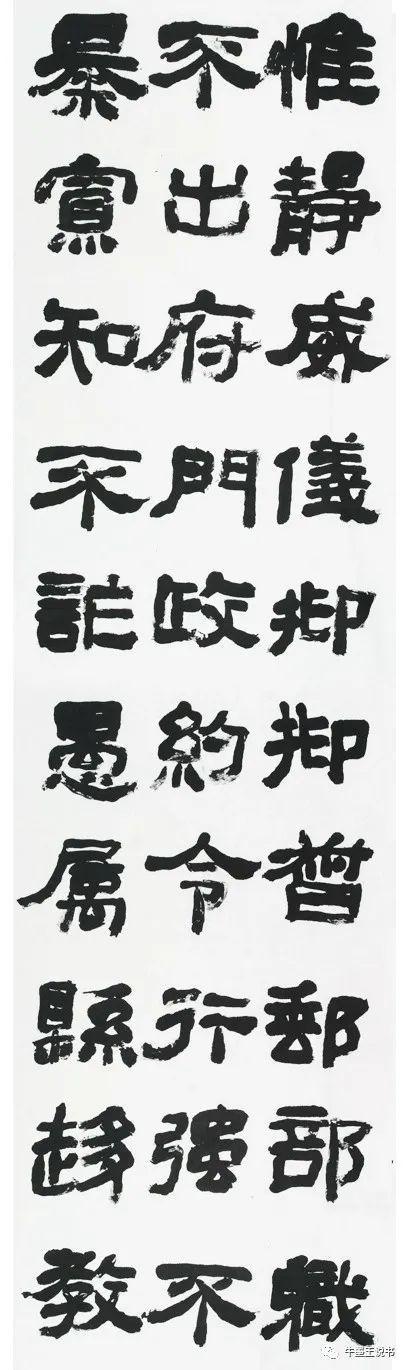 惟靜威儀抑抑督郵部職
不出府門政約令行强不
暴寡知不詐愚属縣趍教